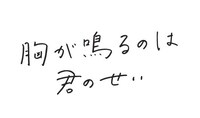 胸が鳴るのは
君のせい